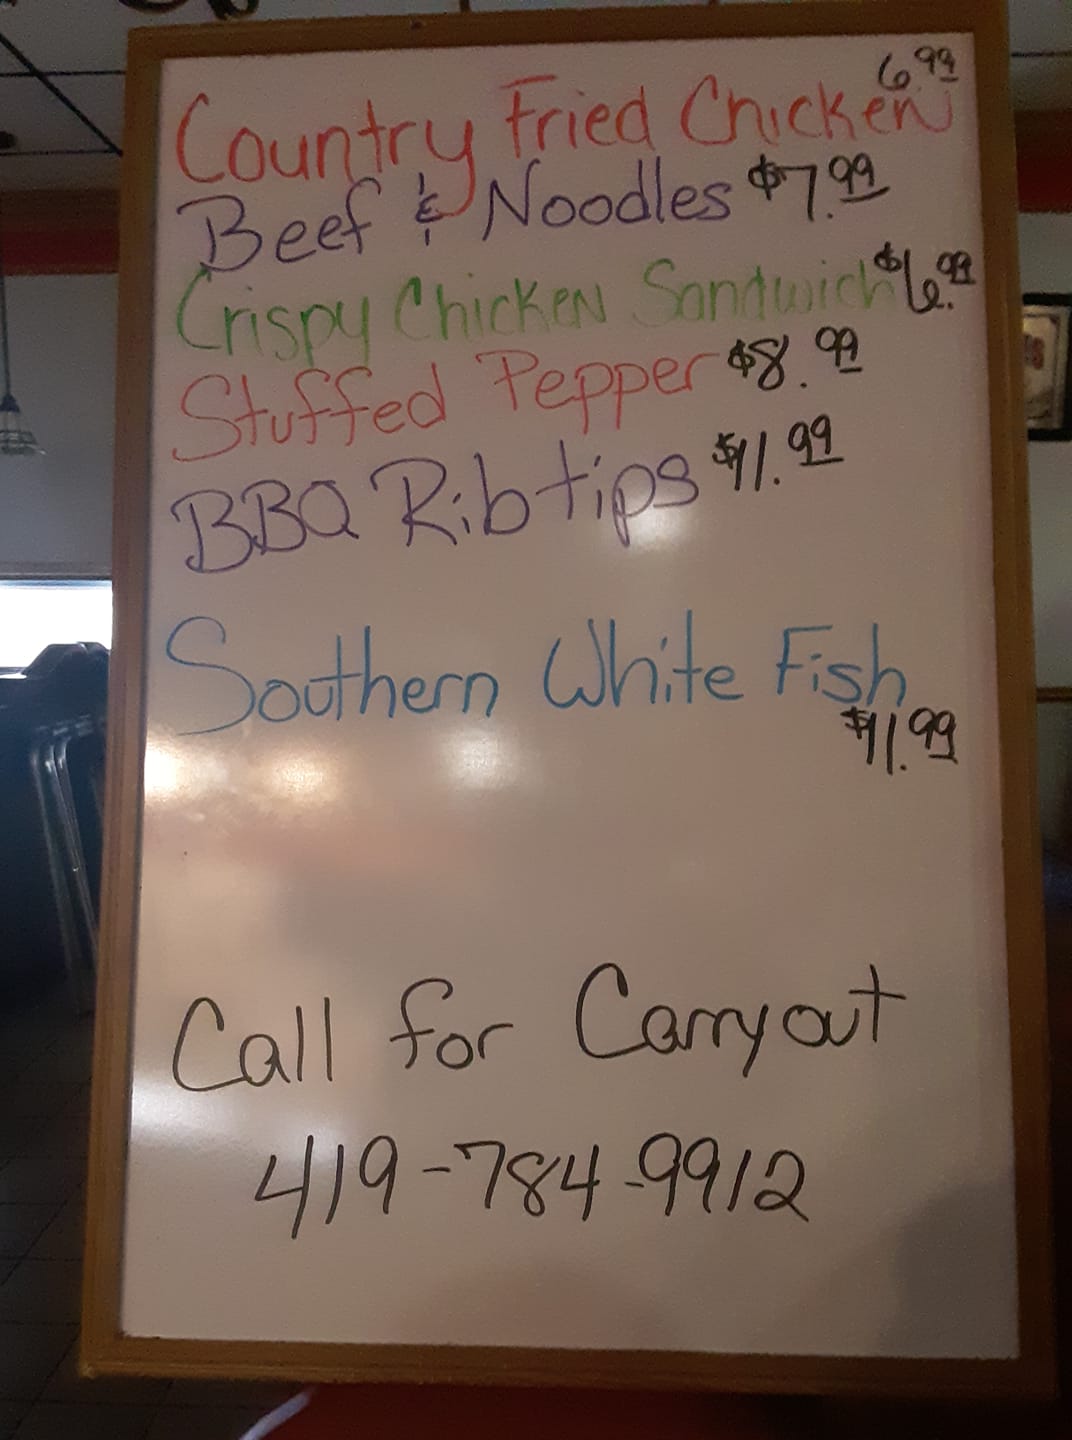 6.99
Country Fried Chicken
Beef & Noodles $7.99
Crispy Chicken Sandwich $6.99
Stuffed Pepper $8.99
BBQ Rib tips $11.99
Southern White Fish
$11.99
Call for Carryout
419-784-9912